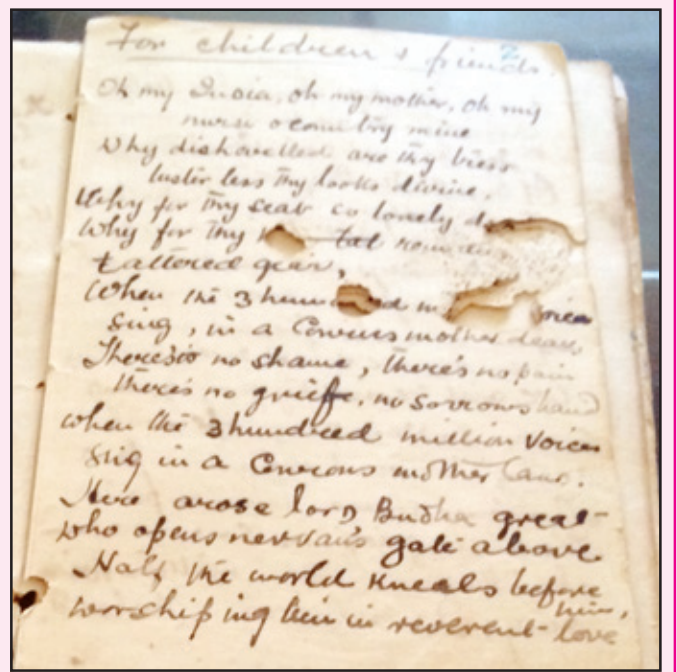 2
For children & friends.
Oh my India, oh my mother, oh my
nurse o country mine
Why dishavelled are thy tress
luster less thy looks divine,
Why for thy seat so lonely
Why for thy
tattered
When the 3
sing, in a mother dear,
no shame, there's no pain
there's no griefe, no sorrows hand
when the 3 hundred million voices
sing in a mother land.
Here arose lord Budha great
who opens nervan's gate above
Half the world kneels before
him,
worshipping him in reverent love